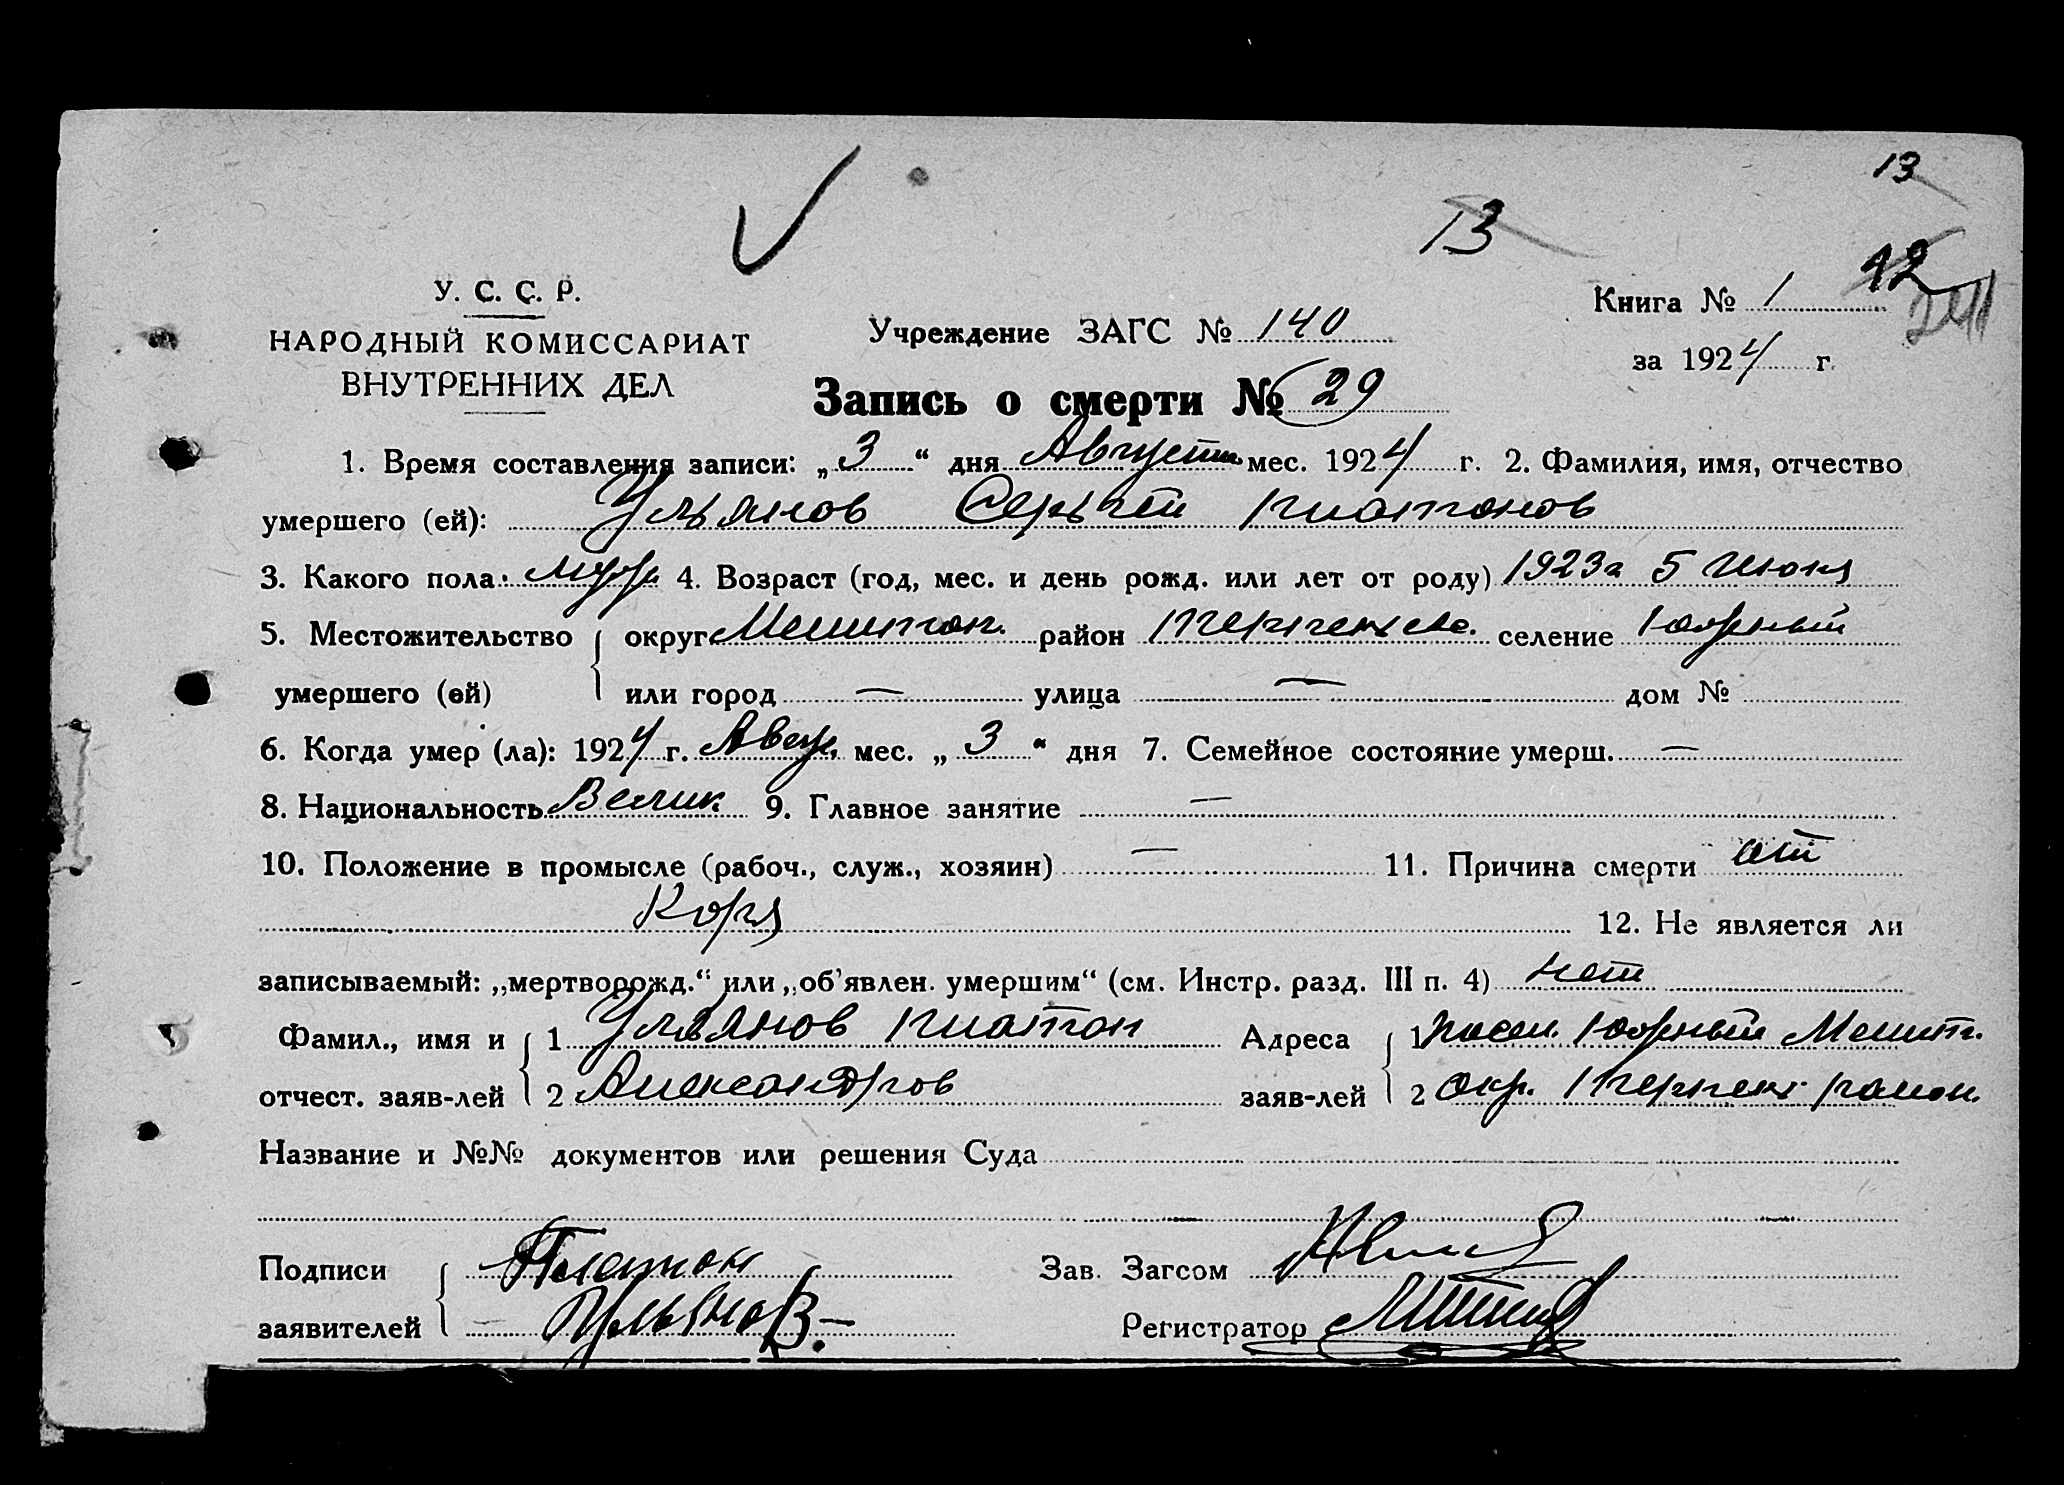 13
13
У. С. С. Р.
Книга № 1 12
НАРОДНЫЙ КОМИССАРИАТ
Учреждение ЗАГС № 140
за 1924 г.
ВНУТРЕННИХ ДЕЛ
Запись о смерти № 29
1. Время составления записи: „3“ дня Августа мес. 1924 г. 2. Фамилия, имя, отчество
умершего (ей): Ульянов Сергей Платонов
3. Какого пола муж. 4. Возраст (год, мес. и день рожд. или лет от роду) 1923 г 5 Июня
5. Местожительство округ Мелитоп. район селение
умершего (ей) или город — улица — дом №
6. Когда умер (ла): 1924 г. Авг. мес. „3“ дня 7. Семейное состояние умерш. —
8. Национальность Велик. 9. Главное занятие —
10. Положение в промысле (рабоч., служ., хозяин) — 11. Причина смерти от
Коря 12. Не является ли
записываемый: „мертворожд.“ или „об'явлен. умершим“ (см. Инстр. разд. III п. 4) нет
Фамил., имя и 1 Ульянов Платон Адреса 1 посел. Мелит.
отчест. заяв-лей 2 Александров заяв-лей 2 окр. район.
Название и №№ документов или решения Суда
Подписи Платон Зав. Загсом
заявителей Ульянов. — Регистратор